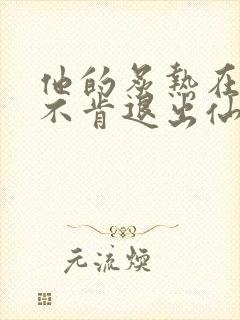 他的炙热在
不肯退出仙
元流煥